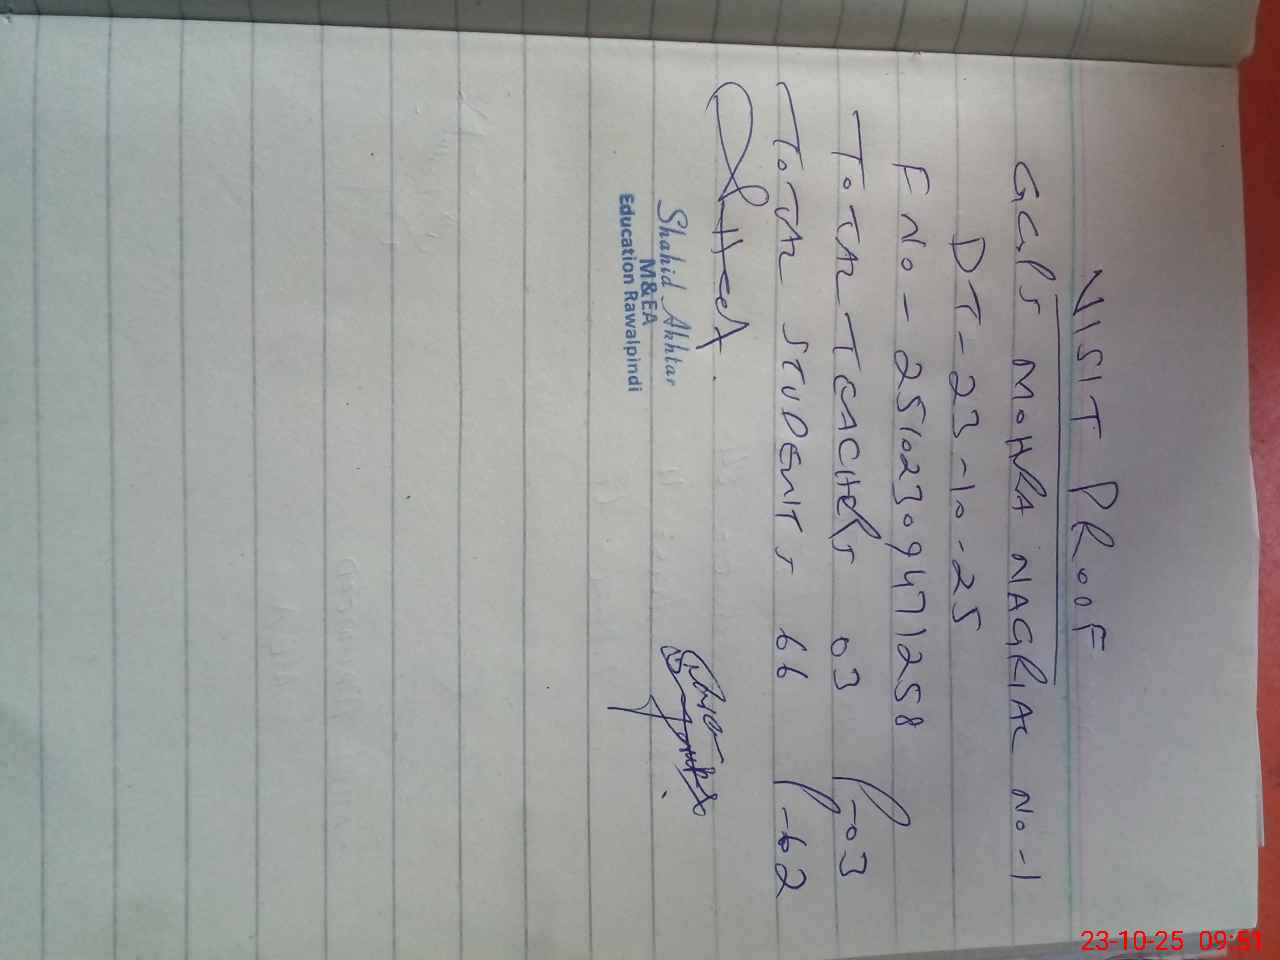 VISIT PROOF
GGPS MOHRA NAGRIAL NO-1
DT-23-10-25
F NO-25102309471258
TOTAL TEACHERS 03 P-03
TOTAL STUDENTS 66 P-62
Shahid Akhtar
M&EA
Education Rawalpindi
23-10-25 09:51